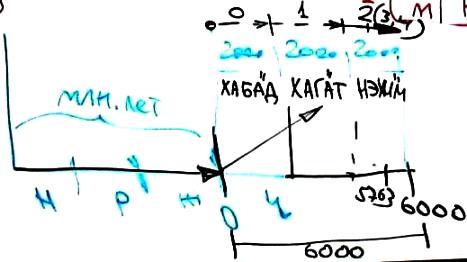 0 1 2(3,4) М
2000 2000 2000
МЛН. ЛЕТ ХАБАД ХАГАТ НЭХИМ
Н Р Ж 0 Ч 5763 6000
6000